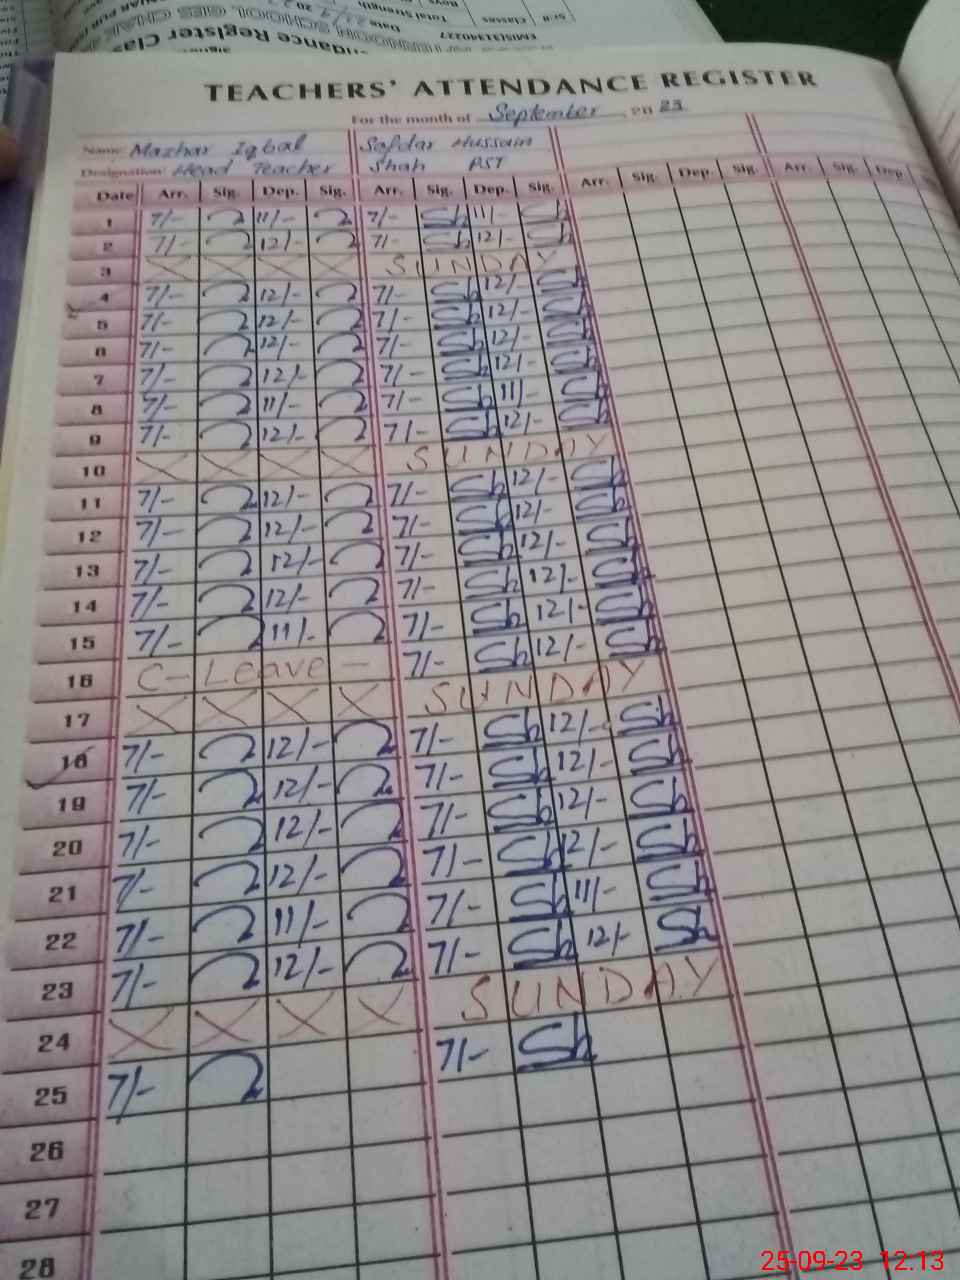 EMIS31340227
Total Strength
Date
Sr.#
Classes
Boys
TEACHERS' ATTENDANCE REGISTER
For the month of September, 20 23
Name: Mazhar Iqbal Safdar Hussain
Designation: Head Teacher Shah PST
Date Arr. Sig. Dep. Sig. Arr. Sig. Dep. Sig. Arr. Sig. Dep. Sig. Arr. Sig. Dep
1 7/- 11/- 7/- Sh 11/- Sh
2 7/- 12/- 7/- Sh 12/- Sh
3 X X X X SUNDAY
4 7/- 12/- 7/- Sh 12/- Sh
5 7/- 12/- 7/- Sh 12/- Sh
6 7/- 12/- 7/- Sh 12/- Sh
7 7/- 12/- 7/- Sh 12/- Sh
8 7/- 11/- 7/- Sh 11/- Sh
9 7/- 12/- 7/- Sh 12/- Sh
10 X X X X SUNDAY
11 7/- 12/- 7/- Sh 12/- Sh
12 7/- 12/- 7/- Sh 12/- Sh
13 7/- 12/- 7/- Sh 12/- Sh
14 7/- 12/- 7/- Sh 12/- Sh
15 7/- 11/- 7/- Sh 12/- Sh
16 C- Leave - 7/- Sh 12/- Sh
17 X X X X SUNDAY
18 7/- 12/- 7/- Sh 12/- Sh
19 7/- 12/- 7/- Sh 12/- Sh
20 7/- 12/- 7/- Sh 12/- Sh
21 7/- 12/- 7/- Sh 12/- Sh
22 7/- 11/- 7/- Sh 11/- Sh
23 7/- 12/- 7/- Sh 12/- Sh
24 X X X X SUNDAY
25 7/- 7/- Sh
26
27
28
25-09-23 12.13